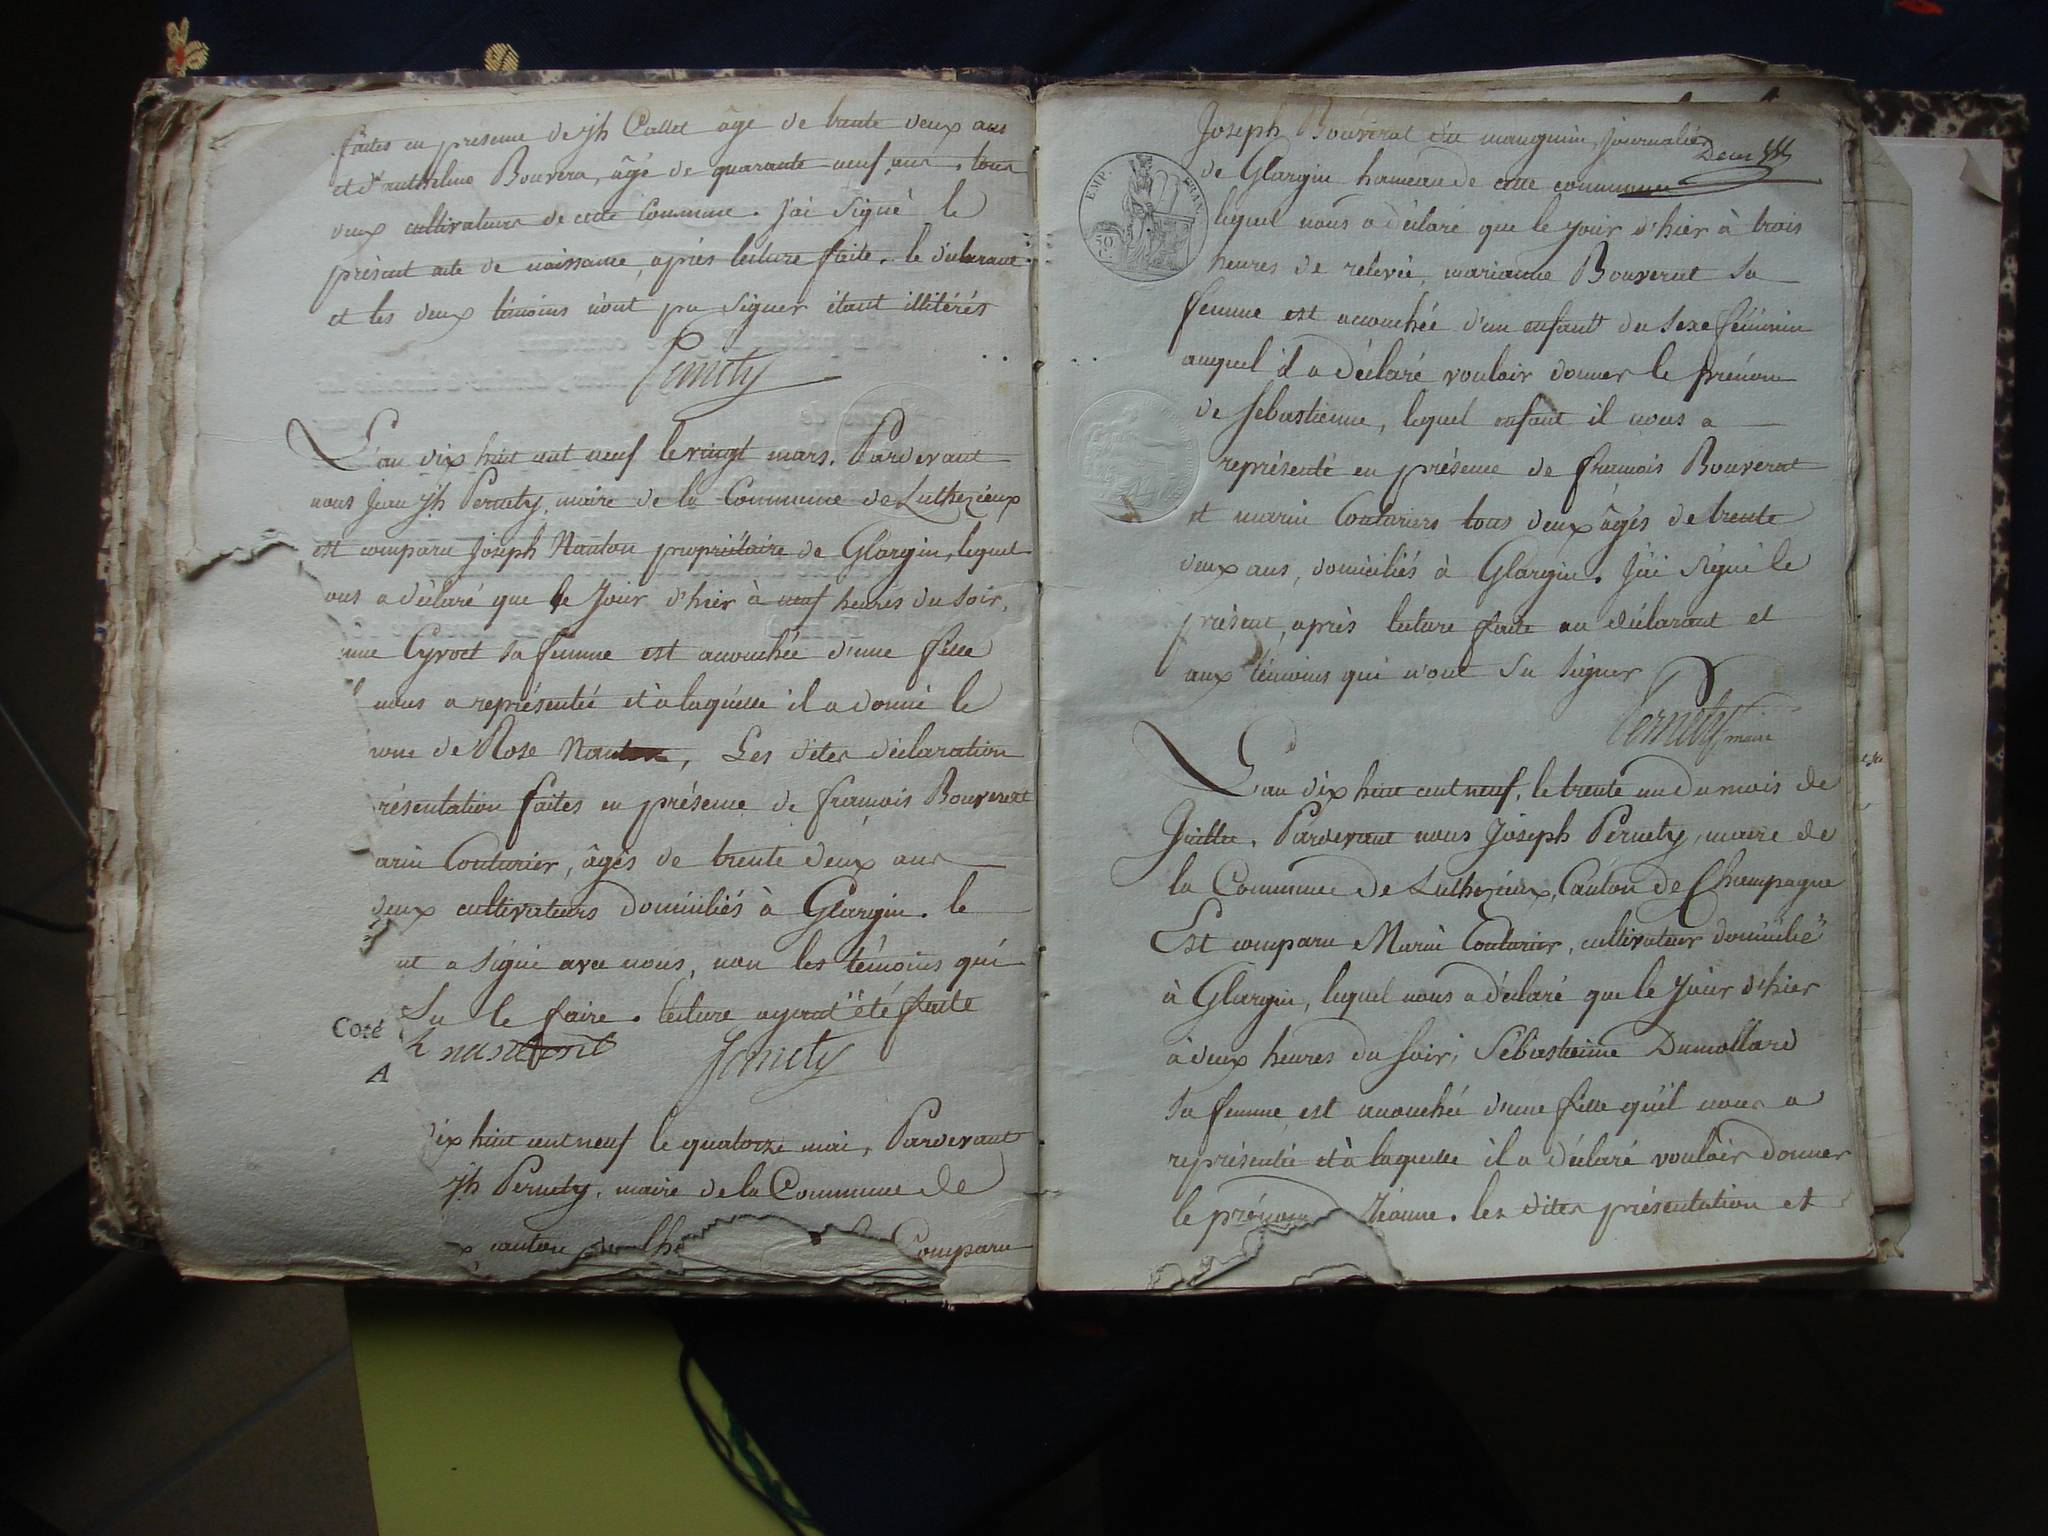 faites en presence de jh Callet âgé de trente deux ans
et d'anthelme Bouvera, âgé de quarante neuf ans, tous
deux cultivateurs de cette Commune. J'ai Signé le
présent acte de naissance, après lecture faite. le déclarant
et les deux témoins n'ont pu Signer étant illitérés
Pernety
L'an dix huit cent neuf le vingt mars. Pardevant
nous Jean jh Pernety, maire de la Commune de Luthezieux
est comparu Joseph Nanton propriétaire de Glargin, lequel
ous a déclaré que le Jour d'hier à neuf heures du Soir,
nne Cyvoct Sa femme est accouchée d'une fille
nous a représentée et à laquelle il a donné le
nom de Rose Nanton, Les dites déclaration
résentation faites en présence de françois Bouverat
arin Couturier, âgés de trente deux ans
deux cultivateurs domiciliés à Glargin. le
nt a Signé avec nous, non les témoins qui
Su le faire. lecture ayant été faite
Coté
A
Pernety
ix huit cent neuf le quatorze mai, Pardevant
jh Pernety, maire de la Commune de
canton de Cha Comparu
Joseph Bouverat dit manguin, Journalier
Deux
de Glargin hameau de cette commune
EMP. FRAN.
50 C.
lequel nous a déclaré que le jour d'hier à trois
heures de relevée, marianne Bouverat Sa
femme est accouchée d'un enfant du Sexe féminin
auquel il a déclaré vouloir donner le prénom
de Sebastienne, lequel enfant il nous a
représenté en présence de françois Bouverat
et marin Couturiers tous deux âgés de trente
deux ans, domiciliés à Glargin. J'ai Signé le
présent, après lecture faite au déclarant et
aux témoins qui n'ont Su Signer
Pernety maire
L'an dix huit cent neuf, le trente un du mois de
Juillet. Pardevant nous Joseph Pernety, maire de
la Commune de Luthezieux, Canton de Champagne
Est comparu Marin Couturier, cultivateur domicilié
à Glargin, lequel nous a déclaré que le jour d'hier
à deux heures du Soir, Sébastienne Dumollard
Sa femme est accouchée d'une fille qu'il nous a
représentée et à laquelle il a déclaré vouloir donner
le prénom Jéanne. les dites présentation et